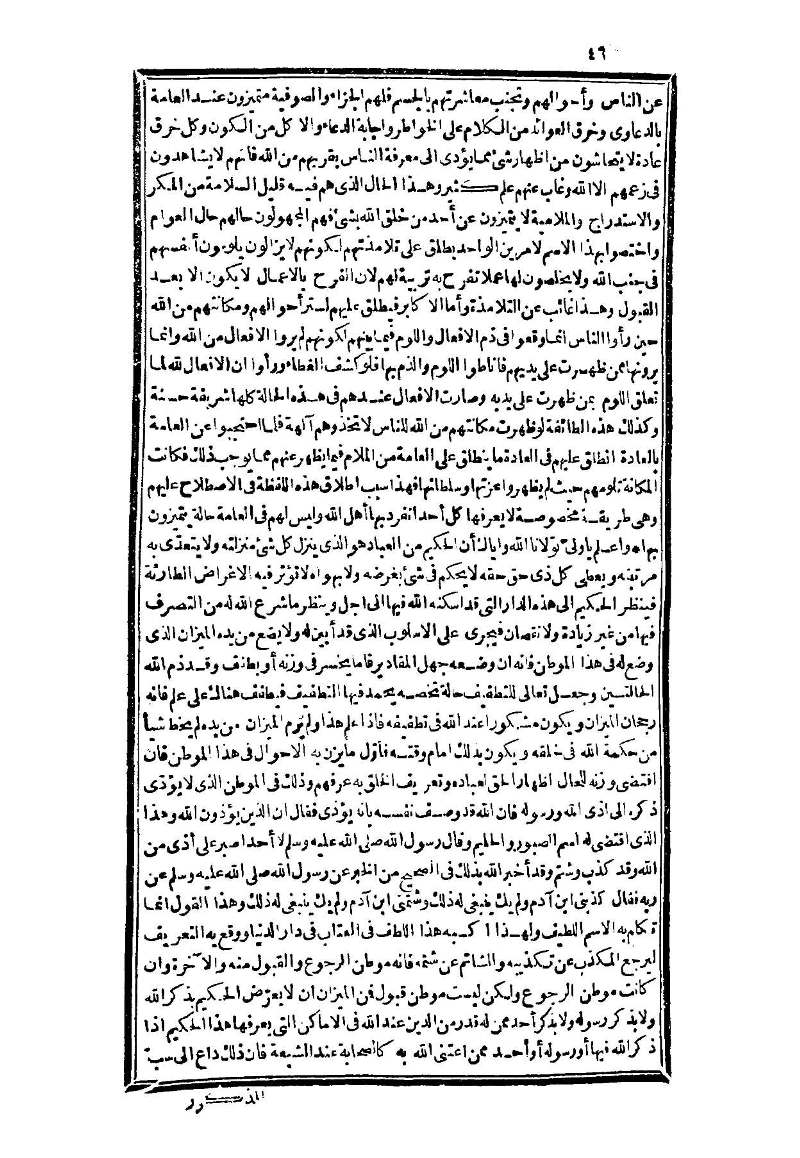 ٤٦
عن الناس وأحوالهم وتجنب معاشرتهم بالجسم فلهم الجزاء والصوفية متميزون عند العامة
بالدعاوى وخرق العوائد من الكلام على الخواطر واجابة الدعاء والاكل من الكون وكل خرق
عادة لا يتحاشون من اظهار شئ مما يؤدى الى معرفة الناس بقربهم من الله فانهم لا يشاهدون
فى زعمهم الا الله وغاب عنهم علم كثير وهذا الحال الذى هم فيه قليل السلامة من المكر
والاستدراج والملامية لا يتميزون عن أحد من خلق الله بشئ فهم المجهولون حالهم حال العوام
واختصوا بهذا الاسم لامرين الواحد يطلق على تلامذتهم لكونهم لا يزالون يلومون أنفسهم
فى جنب الله ولا يخلصون لها عملا تفرح به تربية لهم لان الفرح بالاعمال لا يكون الا بعد
القبول وهذا غائب عن التلامذة وأما الاكابر فيطلق عليهم لستر أحوالهم ومكانتهم من الله
حين رأوا الناس انما وقعوا فى ذم الافعال واللوم فيما بينهم لكونهم لم يروا الافعال من الله وانما
يرونها ممن ظهرت على يديهم فاناطوا اللوم والذم بها فلو كشف الغطاء ورأوا ان الافعال لله لما
تعلق اللوم بمن ظهرت على يديه وصارت الافعال عندهم فى هذه الحالة كلها شريفة حسنة
وكذلك هذه الطائفة لو ظهرت مكانتهم من الله للناس لاتخذوهم آلهة فلما احتجبوا عن العامة
بالعادة انطلق عليهم فى العادة ما ينطلق على العامة من الملام فيما يظهر عنهم مما يوجب ذلك فكانت
المكانة تلومهم حيث لم يظهروا عزتها وسلطانها فهذا سبب اطلاق هذه اللفظة فى الاصطلاح عليهم
وهى طريقة مخصوصة لا يعرفها كل أحد انفرد بها أهل الله وليس لهم فى العامة حالة يتميزون
بها واعلم يا ولى تولانا الله واياك أن الحكيم من العباد هو الذى ينزل كل شئ منزلته ولا يتعدى به
مرتبته ويعطى كل ذى حق حقه لا يحكم فى شئ بغرضه ولا بهواه لا تؤثر فيه الاغراض الطارئة
فينظر الحكيم الى هذه الدار التى قد اسكنه الله فيها الى اجل وينظر ما شرع الله له من التصرف
فيها من غير زيادة ولا نقصان فيجرى على الاسلوب الذى قد أبين له ولا يضع من يده الميزان الذى
وضع له فى هذا الموطن فانه ان وضعه جهل المقادير فاما يخسر فى وزنه أو يطفف وقد ذم الله
الحالتين وجعل تعالى للتطفيف حالة تخصه يحمد فيها التطفيف فيطفف هناك على علم فانه
رجحان الميزان ويكون مشكورا عند الله فى تطفيفه فاذا علم هذا ولم يرم الميزان من يده لم يخط شيأ
من حكمة الله فى خلقه ويكون بذلك امام وقته فأول ما يزن به الاحوال فى هذا الموطن فان
اقتضى وزنه للحال اظهار الحق لعباده وتعريف الخلق به عرفهم وذلك فى الموطن الذى لا يؤدى
ذكره الى اذى الله ورسوله فان الله قد وصف نفسه بانه يؤذى فقال ان الذين يؤذون الله وهذا
الذى اقتضى له اسم الصبور والحليم وقال رسول الله صلى الله عليه وسلم لا أحد اصبر على أذى من
الله وقد كذب وشتم وقد أخبر الله بذلك فى الصحيح من الخبر عن رسول الله صلى الله عليه وسلم عن
ربه فقال كذبنى ابن آدم ولم يك ينبغى له ذلك وشتمنى ابن آدم ولم يك ينبغى له ذلك وهذا القول انما
تكلم به الاسم اللطيف ولهذا اكسبه هذا اللطف فى العتاب فى دار الدنيا ووقع به التعريف
ليرجع المكذب عن تكذيبه والشاتم عن شتمه فانه موطن الرجوع والقبول منه والآخرة وان
كانت موطن الرجوع ولكن ليست موطن قبول فمن الميزان ان لا يعرض الحكيم بذكر الله
ولا بذكر رسوله ولا بذكر أحد ممن له قدر من الدين عند الله فى الاماكن التى يعرفها هذا الحكيم اذا
ذكر الله فيها أو رسوله أو أحد ممن اعتنى الله به كالصحابة عند الشيعة فان ذلك داع الى سب
المذكور